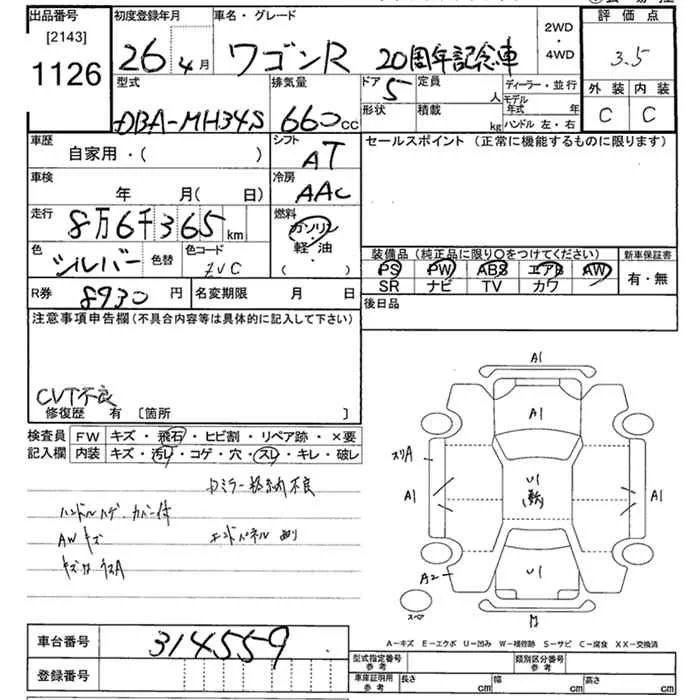 出品番号
[2143]
1126
初度登録年月
26年4月
車名・グレード
ワゴンR 20周年記念車
2WD
・
4WD
評価点
3.5
外装 内装
C C
型式
DBA-MH34S
排気量
660cc
ドア 5
形状
定員
人
積載
kg
ディーラー・並行
モデル年式 年
ハンドル 左・右
車歴
自家用・( )
シフト
AT
セールスポイント (正常に機能するものに限ります)
車検
年 月(日)
冷房
AAC
走行
8万6千365km
燃料
ガソリン
軽油
( )
色
シルバー
色替
色コード
ZVC
装備品(純正品に限り○をつけてください)
PS PW ABS エアB AW
SR ナビ TV カワ
新車保証書
有・無
R券 8930円
名変期限 月 日
後日品
注意事項申告欄(不具合内容等は具体的に記入して下さい)
CVT不良
修復歴 有 [箇所 ]
検査員記入欄
FW キズ・飛石・ヒビ割・リペア跡・×要
内装 キズ・汚レ・コゲ・穴・スレ・キレ・破レ
ハンドルハゲ・カバー付
AWキズ
エンドパネル
A1
A1
スリA
A1
U1
A1
U1
A2
スペア
A-キズ E-エクボ U-凹み W-補修跡 S-サビ C-腐食 XX-交換済
車台番号 314559
登録番号
型式指定番号
参考
類別区分番号
参考
車庫証明用
参考
長さ cm 幅 cm 高さ cm